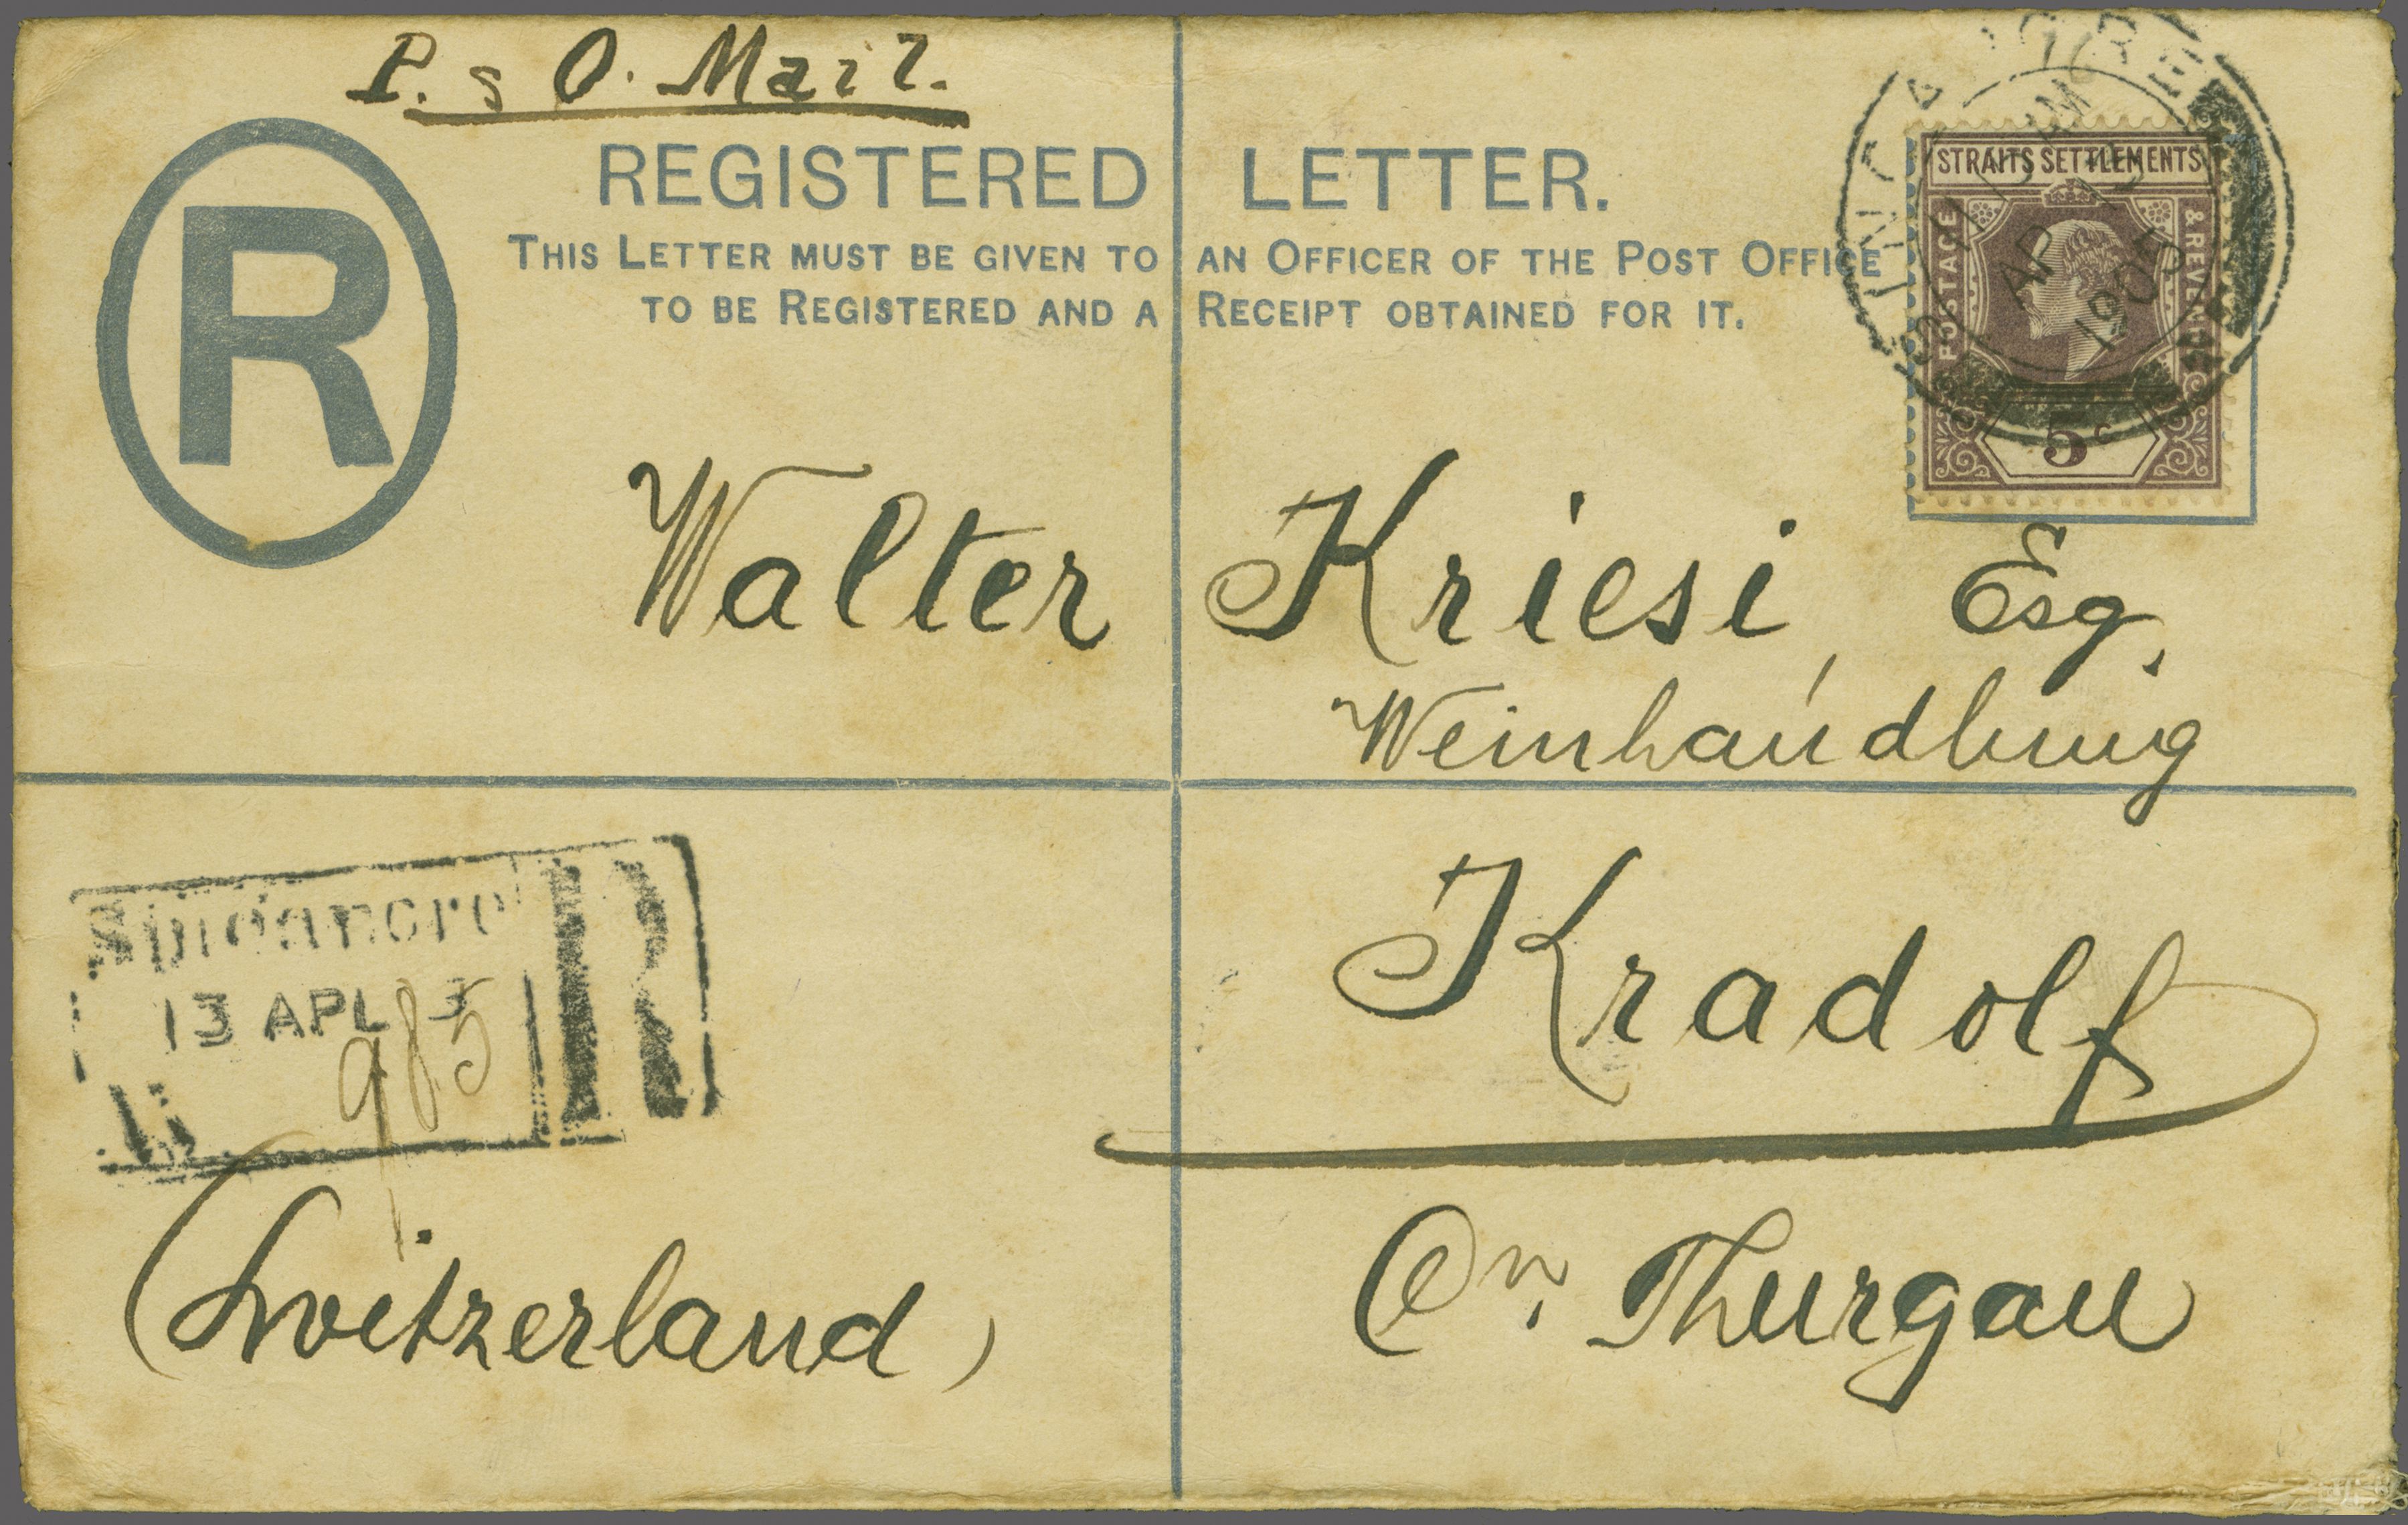 P. & O. Mail.
REGISTERED LETTER.
THIS LETTER MUST BE GIVEN TO AN OFFICER OF THE POST OFFICE
TO BE REGISTERED AND A RECEIPT OBTAINED FOR IT.
R
STRAITS SETTLEMENTS
POSTAGE
& REVENUE
5c
SINGAPORE
AM
AP
1905
Walter Kriesi, Esq.
Weinhandlung
Kradolf
Ct. Thurgau
Singapore
13 APL 5
R
985
(Switzerland)